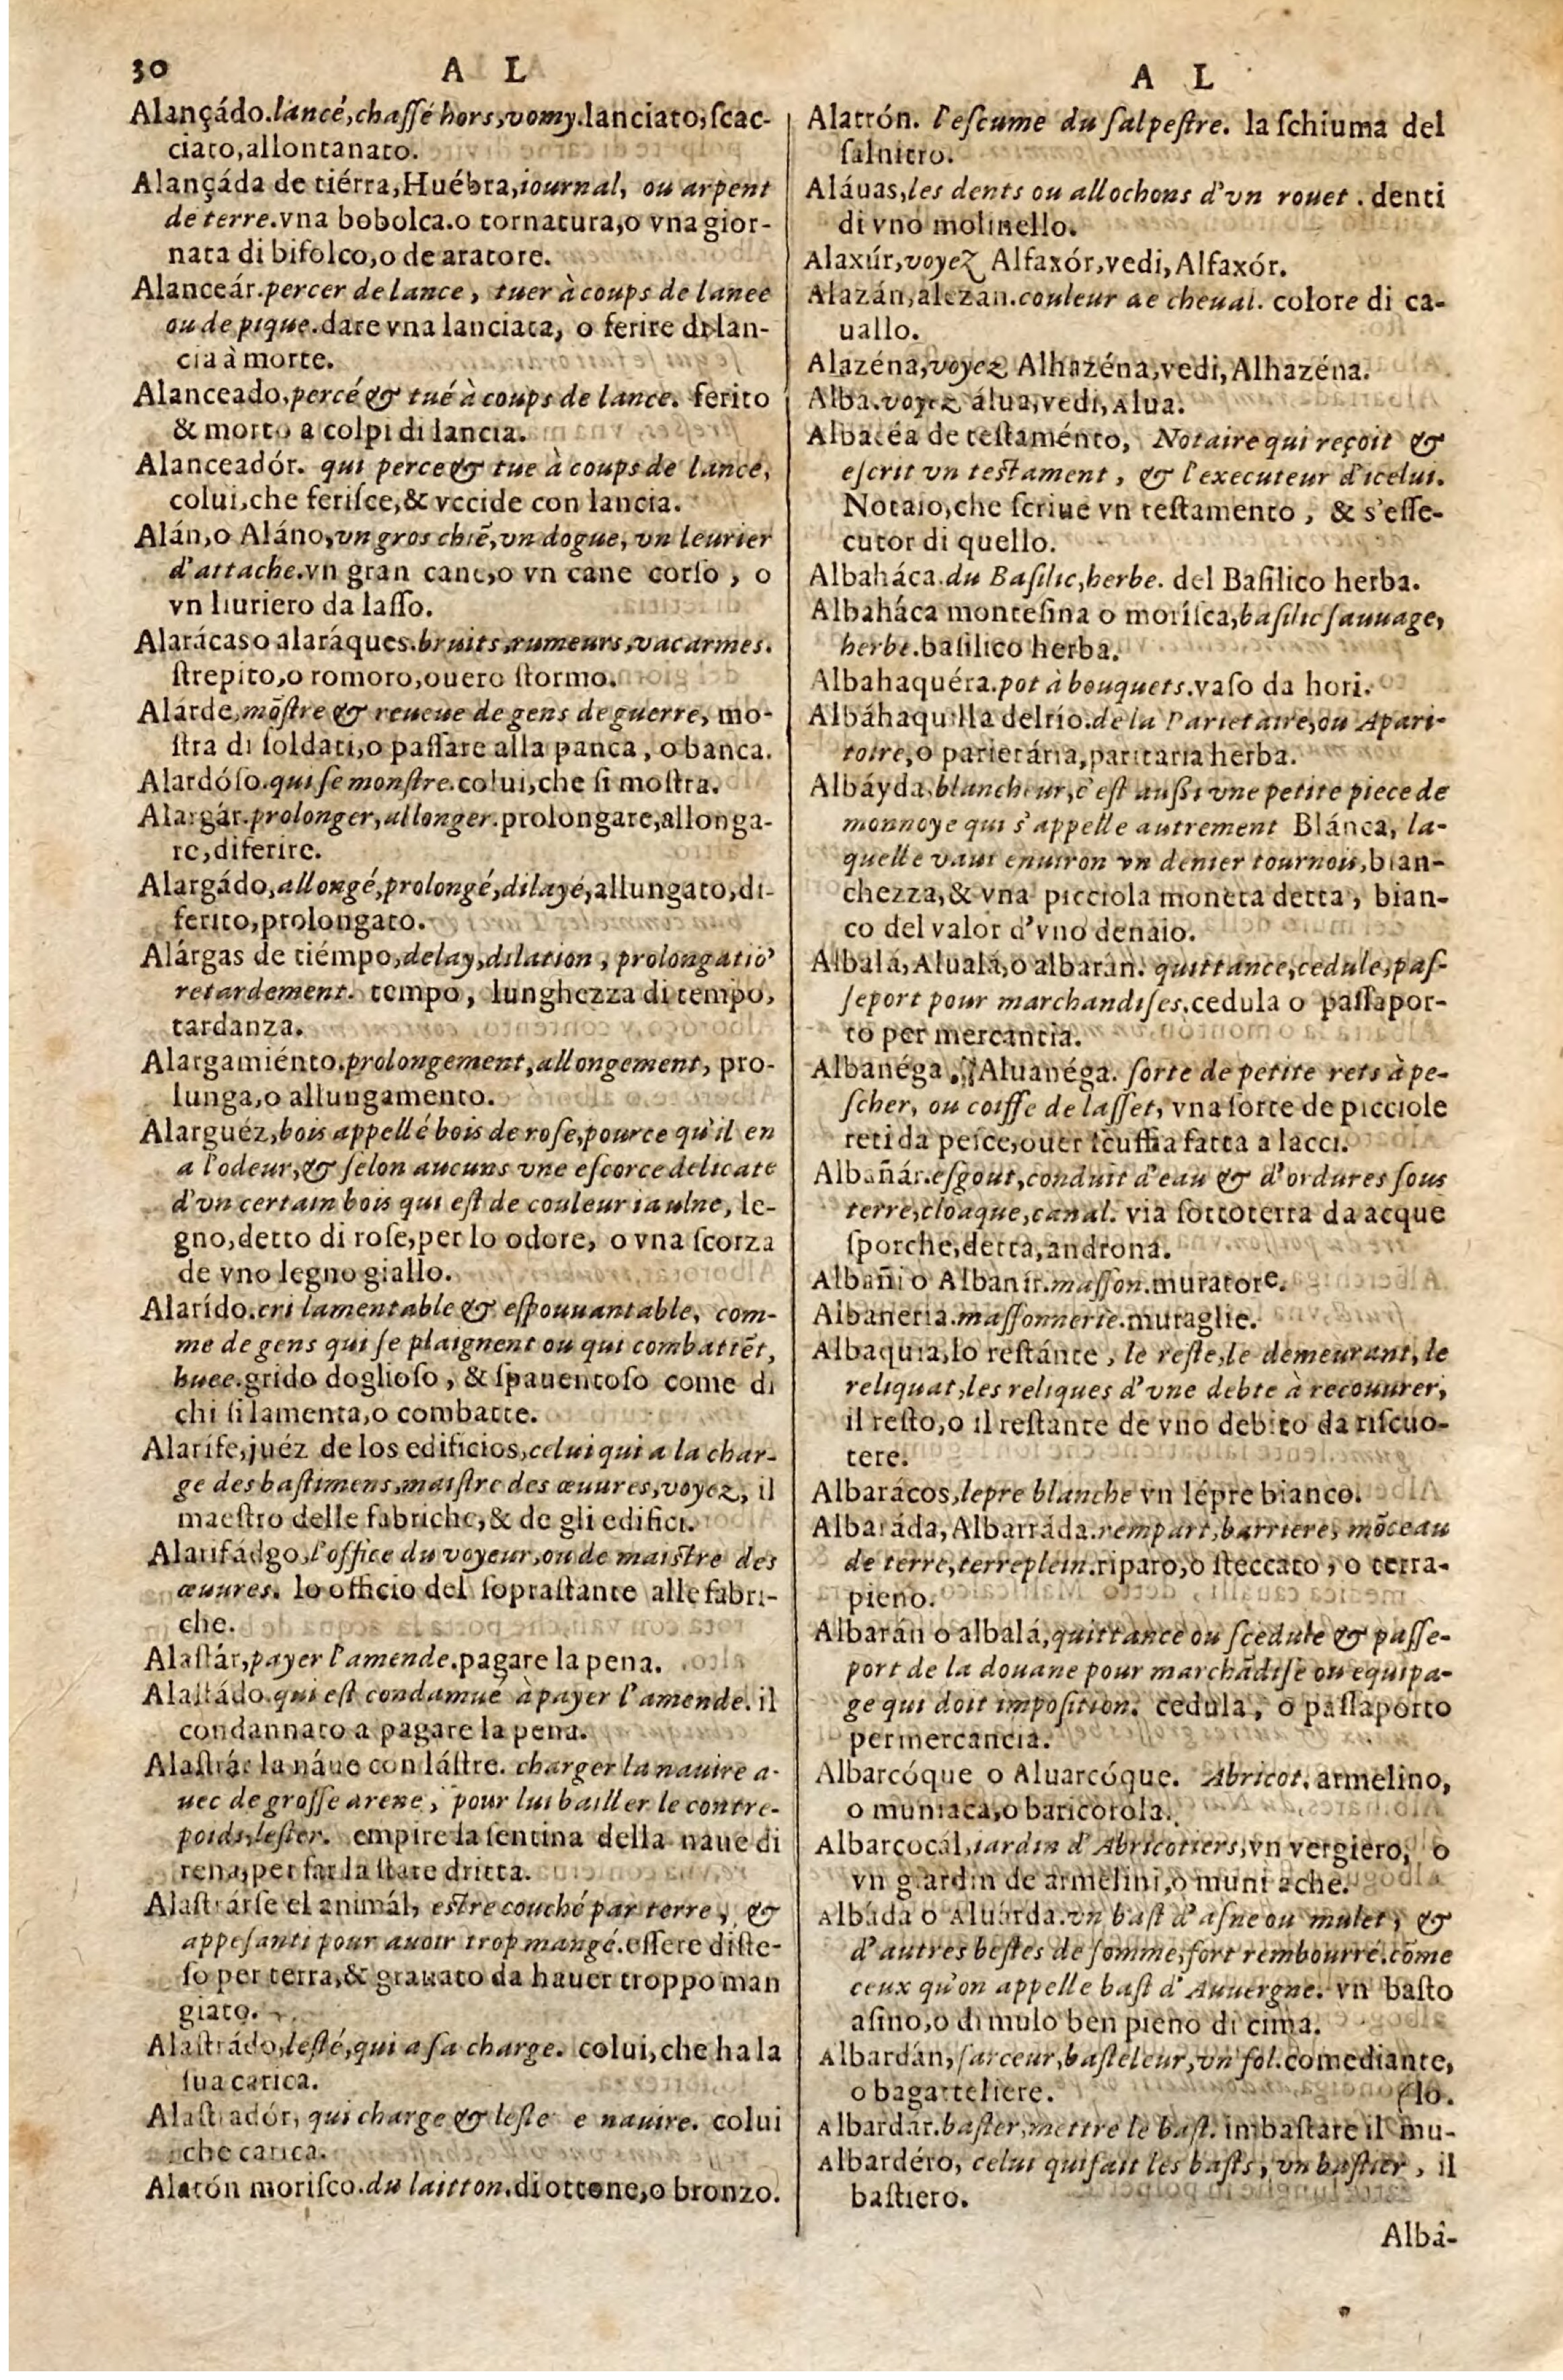 30
A L
Alançádo.lancé,chaſſé hors,vomy.lanciato,ſcac-
ciato,allontanato.
Alançáda de tiérra,Huébra,iournal, ou arpent
de terre.vna bobolca.o tornatura,o vna gior-
nata di bifolco,o de aratore.
Alanceár.percer de lance, tuer à coups de lance
ou de pique.dare vna lanciata, o ferire di lan-
cia à morte.
Alanceado,percé & tué à coups de lance. ferito
& morto a colpi di lancia.
Alanceadór. qui perce & tue à coups de lance,
colui,che feriſce,& vccide con lancia.
Alán,o Aláno,vn gros chiē,vn dogue, vn leurier
d'attache.vn gran cane,o vn cane corſo, o
vn liuriero da laſſo.
Alarácas o alaráques.bruits,rumeurs,vacarmes.
ſtrepito,o romoro,ouero ſtormo.
Alárde,mōſtre & reueue de gens de guerre, mo-
ſtra di ſoldati,o paſſare alla panca, o banca.
Alardóſo.qui ſe monſtre.colui,che ſi moſtra.
Alargár.prolonger,allonger.prolongare,allonga-
re,diferire.
Alargádo,allongé,prolongé,dilayé,allungato,di-
ferito,prolongato.
Alárgas de tiémpo,delay,dilation, prolongatiō
retardement. tempo, lunghezza di tempo,
tardanza.
Alargamiénto.prolongement,allongement, pro-
lunga,o allungamento.
Alarguéz,bois appellé bois de roſe,pource qu'il en
a l'odeur,& ſelon aucuns vne eſcorce delicate
d'vn certain bois qui eſt de couleur iaulne, le-
gno,detto di roſe,per lo odore, o vna ſcorza
de vno legno giallo.
Alarído.cri lamentable & eſpouuantable, com-
me de gens qui ſe plaignent ou qui combattēt,
huee.grido doglioſo, & ſpauentoſo come di
chi ſi lamenta,o combatte.
Alarífe,juéz de los edificios,celui qui a la char-
ge des baſtimens,maiſtre des œuures,voyez, il
maeſtro delle fabriche,& de gli edifici.
Alarifádgo,l'office du voyeur,ou de maiſtre des
œuures. lo officio del ſopraſtante alle fabri-
che.
Alaſtár,payer l'amende.pagare la pena.
Alaſtádo.qui eſt condamué à payer l'amende. il
condannato a pagare la pena.
Alaſtrár la náue con láſtre. charger la nauire a-
uec de groſſe arene, pour lui bailler le contre-
poids,leſter. empire la ſentina della naue di
rena,per far la ſtare dritta.
Alaſtrárſe el animál, eſtre couché par terre, &
appeſanti pour auoir trop mangé.eſſere diſte-
ſo per terra,& grauato da hauer troppo man
giato.
Alaſtrádo,leſté,qui a ſa charge. colui,che ha la
ſua carica.
Alaſtradór, qui charge & leſte e nauire. colui
che carica.
Alatón moriſco.du laitton.di ottone,o bronzo.
A L
Alatrón. l'eſcume du ſalpeſtre. la ſchiuma del
ſalnitro.
Aláuas,les dents ou allochons d'vn rouet . denti
di vno molinello.
Alaxúr,voyez Alfaxór,vedi,Alfaxór.
Alazán,alezan.couleur de cheual. colore di ca-
uallo.
Alazéna,voyez Alhazéna,vedi,Alhazéna.
Alba.voyez álua,vedi,Alua.
Albacéa de teſtaménto, Notaire qui reçoit &
eſcrit vn teſtament, & l'executeur d'icelui.
Notaio,che ſcriue vn teſtamento, & s'eſſe-
cutor di quello.
Albaháca.du Baſilic,herbe. del Baſilico herba.
Albaháca monteſina o moriſca,baſilic ſauuage,
herbe.baſilico herba.
Albahaquéra.pot à bouquets.vaſo da hori.
Albáhaquilla del río.de la Parietaire,ou Apari-
toire,o parietária,paritaria herba.
Albáyda,blancheur,c'eſt auſſi vne petite piece de
monnoye qui s'appelle autrement Blánca, la-
quelle vaut enuiron vn denier tournois,bian-
chezza,& vna picciola moneta detta, bian-
co del valor d'vno denaio.
Albalá,Alualá,o albarán. quittance,cedule,paſ-
ſeport pour marchandiſes.cedula o paſſapor-
to per mercantia.
Albanéga. Aluanéga. ſorte de petite rets à pe-
ſcher, ou coiffe de laſſet, vna ſorte de picciole
reti da peſce,ouer ſcuffia fatta a lacci.
Albañár.eſgout,conduit d'eau & d'ordures ſous
terre,cloaque,canal. via ſottoterra da acque
ſporche,detta,androna.
Albañi o Albanír.maſſon.muratore.
Albaneria.maſſonnerie.muraglie.
Albaquia,lo reſtánte, le reſte,le demeurant,le
reliquat,les reliques d'vne debte à recouurer,
il reſto,o il reſtante de vno debito da riſcuo-
tere.
Albarácos,lepre blanche vn lépre bianco.
Albaráda,Albarráda.rempart,barriere, mōceau
de terre,terreplein.riparo,o ſteccato, o terra-
pieno.
Albarán o albalá,quittance ou ſcedule & paſſe-
port de la douane pour marchādiſe ou equipa-
ge qui doit impoſition. cedula, o paſſaporto
per mercancia.
Albarcóque o Aluarcóque. Abricot. armelino,
o muniaca,o baricotola.
Albarcocál,iardin d'Abricotiers,vn vergiero, o
vn giardin de armelini,o muniache.
Albáda o Aluárda.vn baſt d'aſne ou mulet, &
d'autres beſtes de ſomme,fort rembourré.cōme
ceux qu'on appelle baſt d'Auuergne. vn baſto
aſino,o di mulo ben pieno di cima.
Albardán, farceur,baſteleur,vn fol.comediante,
o bagatteliere. (lo.
Albardár.baſter,mettre le baſt. imbaſtare il mu-
Albardéro, celui qui fait les baſts, vn baſtier, il
baſtiero.
Albâ-